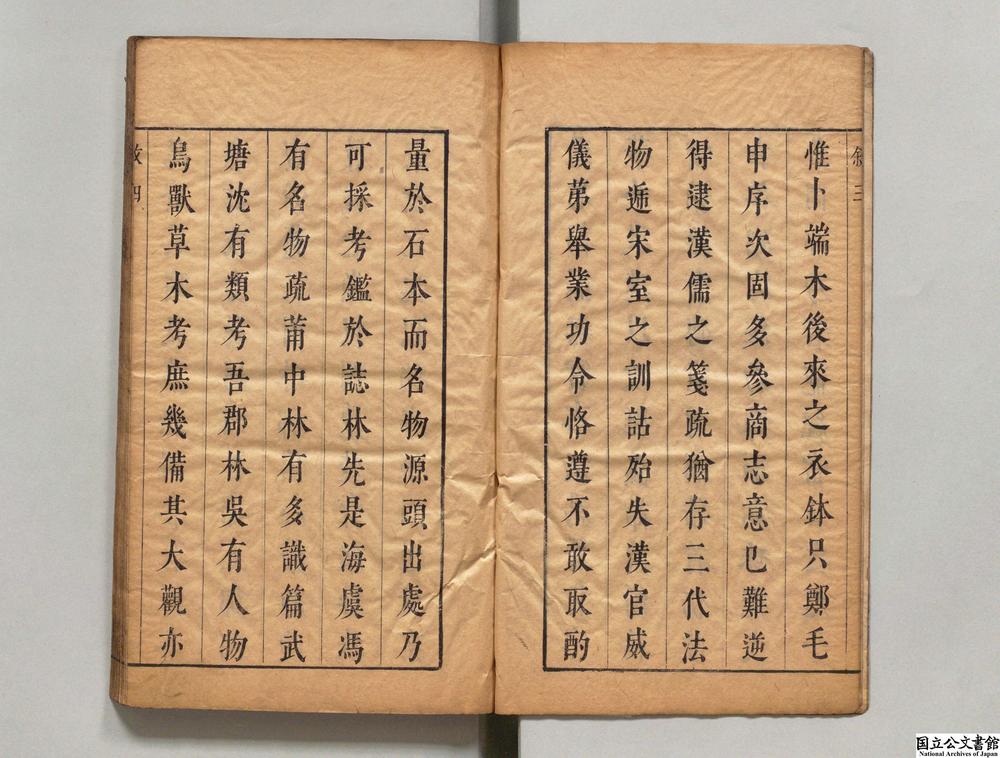 惟卜端木後來之衣鉢只鄭毛
申序次固多參商志意已難逆
得逮漢儒之箋疏猶存三代法
物遞宋室之訓詁殆失漢官威
儀第舉業功令恪遵不敢取酌
量於石本而名物源頭出處乃
可採考鑑於誌林先是海虞馮
有名物疏莆中林有多識篇武
塘沈有類考吾郡林吳有人物
鳥獸草木考庶幾備其大觀亦
国立公文書館
National Archives of Japan